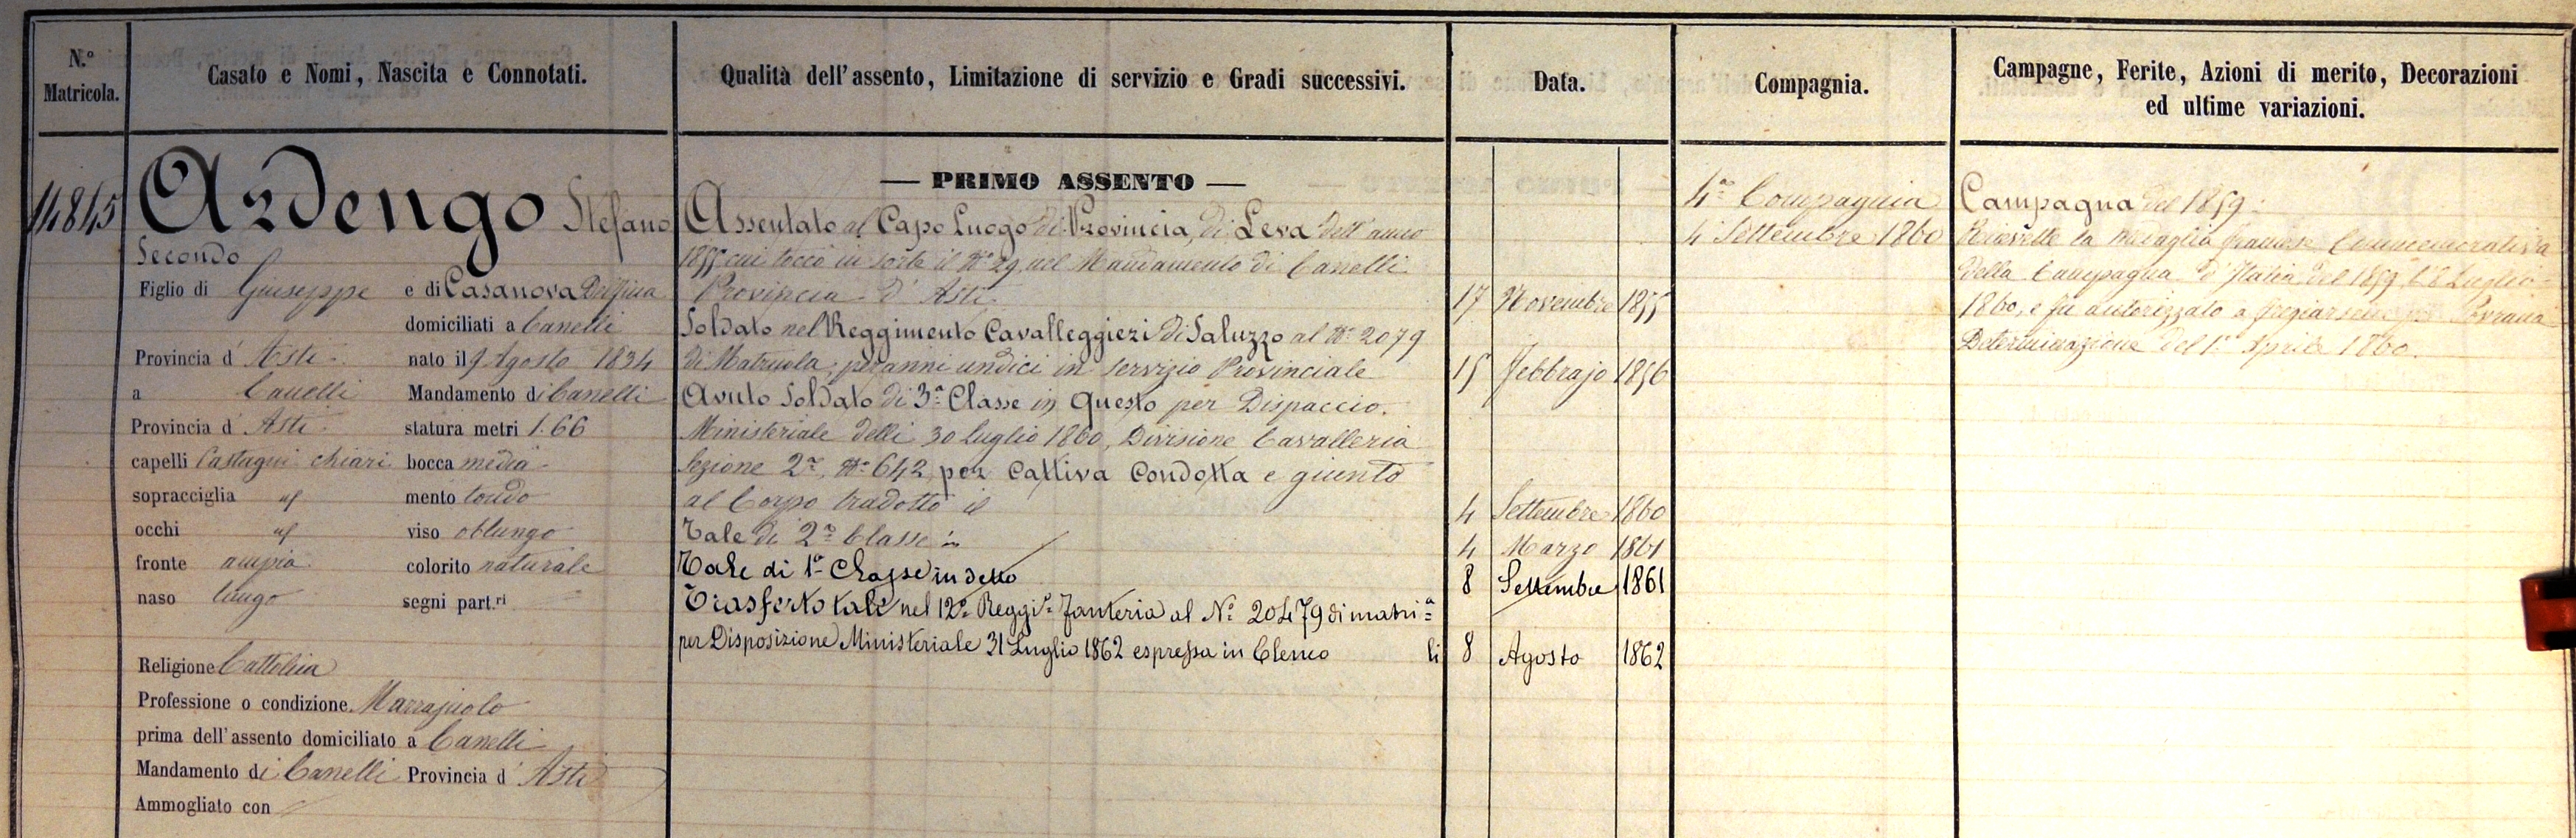 N.º Matricola.
Casato e Nomi, Nascita e Connotati.
Qualità dell'assento, Limitazione di servizio e Gradi successivi.
Data.
Compagnia.
Campagne, Ferite, Azioni di merito, Decorazioni
ed ultime variazioni.
14845
Ardengo Stefano
Secondo
Figlio di Giuseppe e di Casanova Delfina
domiciliati a Canelli
Provincia d' Asti nato il 9 Agosto 1834
a Canelli Mandamento di Canelli
Provincia d' Asti statura metri 1.66
capelli Castagni chiari bocca media
sopracciglia mento tondo
occhi viso oblungo
fronte ampia colorito naturale
naso lungo segni part.ri
Religione Cattolica
Professione o condizione
prima dell'assento domiciliato a Canelli
Mandamento di Canelli Provincia d' Asti
Ammogliato con
— PRIMO ASSENTO —
Assentato al Capo Luogo di Provincia, di Leva dell'anno
1855 cui toccò in sorte il Nº 29 nel Mandamento di Canelli
Provincia d' Asti 17 Novembre 1855
Soldato nel Reggimento Cavalleggieri di Saluzzo al Nº 2079
di Matricola; per anni undici in servizio Provinciale 15 Febbrajo 1856
Avuto Soldato di 3ª Classe in questo per Dispaccio
Ministeriale delli 30 Luglio 1860, Divisione Cavalleria
Sezione 2ª, Nº 642 per Cattiva Condotta e giunto
al Corpo tradotto il 4 Settembre 1860
Tale di 2ª Classe in 4 Marzo 1861
Tale di 1ª Classe in detto 8 Settembre 1861
Trasferto tale nel 12º Reggiº Fanteria al Nº 20479 di matriª
per Disposizione Ministeriale 31 Luglio 1862 espressa in Elenco li 8 Agosto 1862
4ª Compagnia
4 Settembre 1860
Campagna del 1859:
Ricevette la medaglia francese Commemorativa
della Campagna d'Italia del 1859 Luglio
1860, e fu autorizzato a fregiarsene per Sovrana
Determinazione del 1º Aprile 1860.